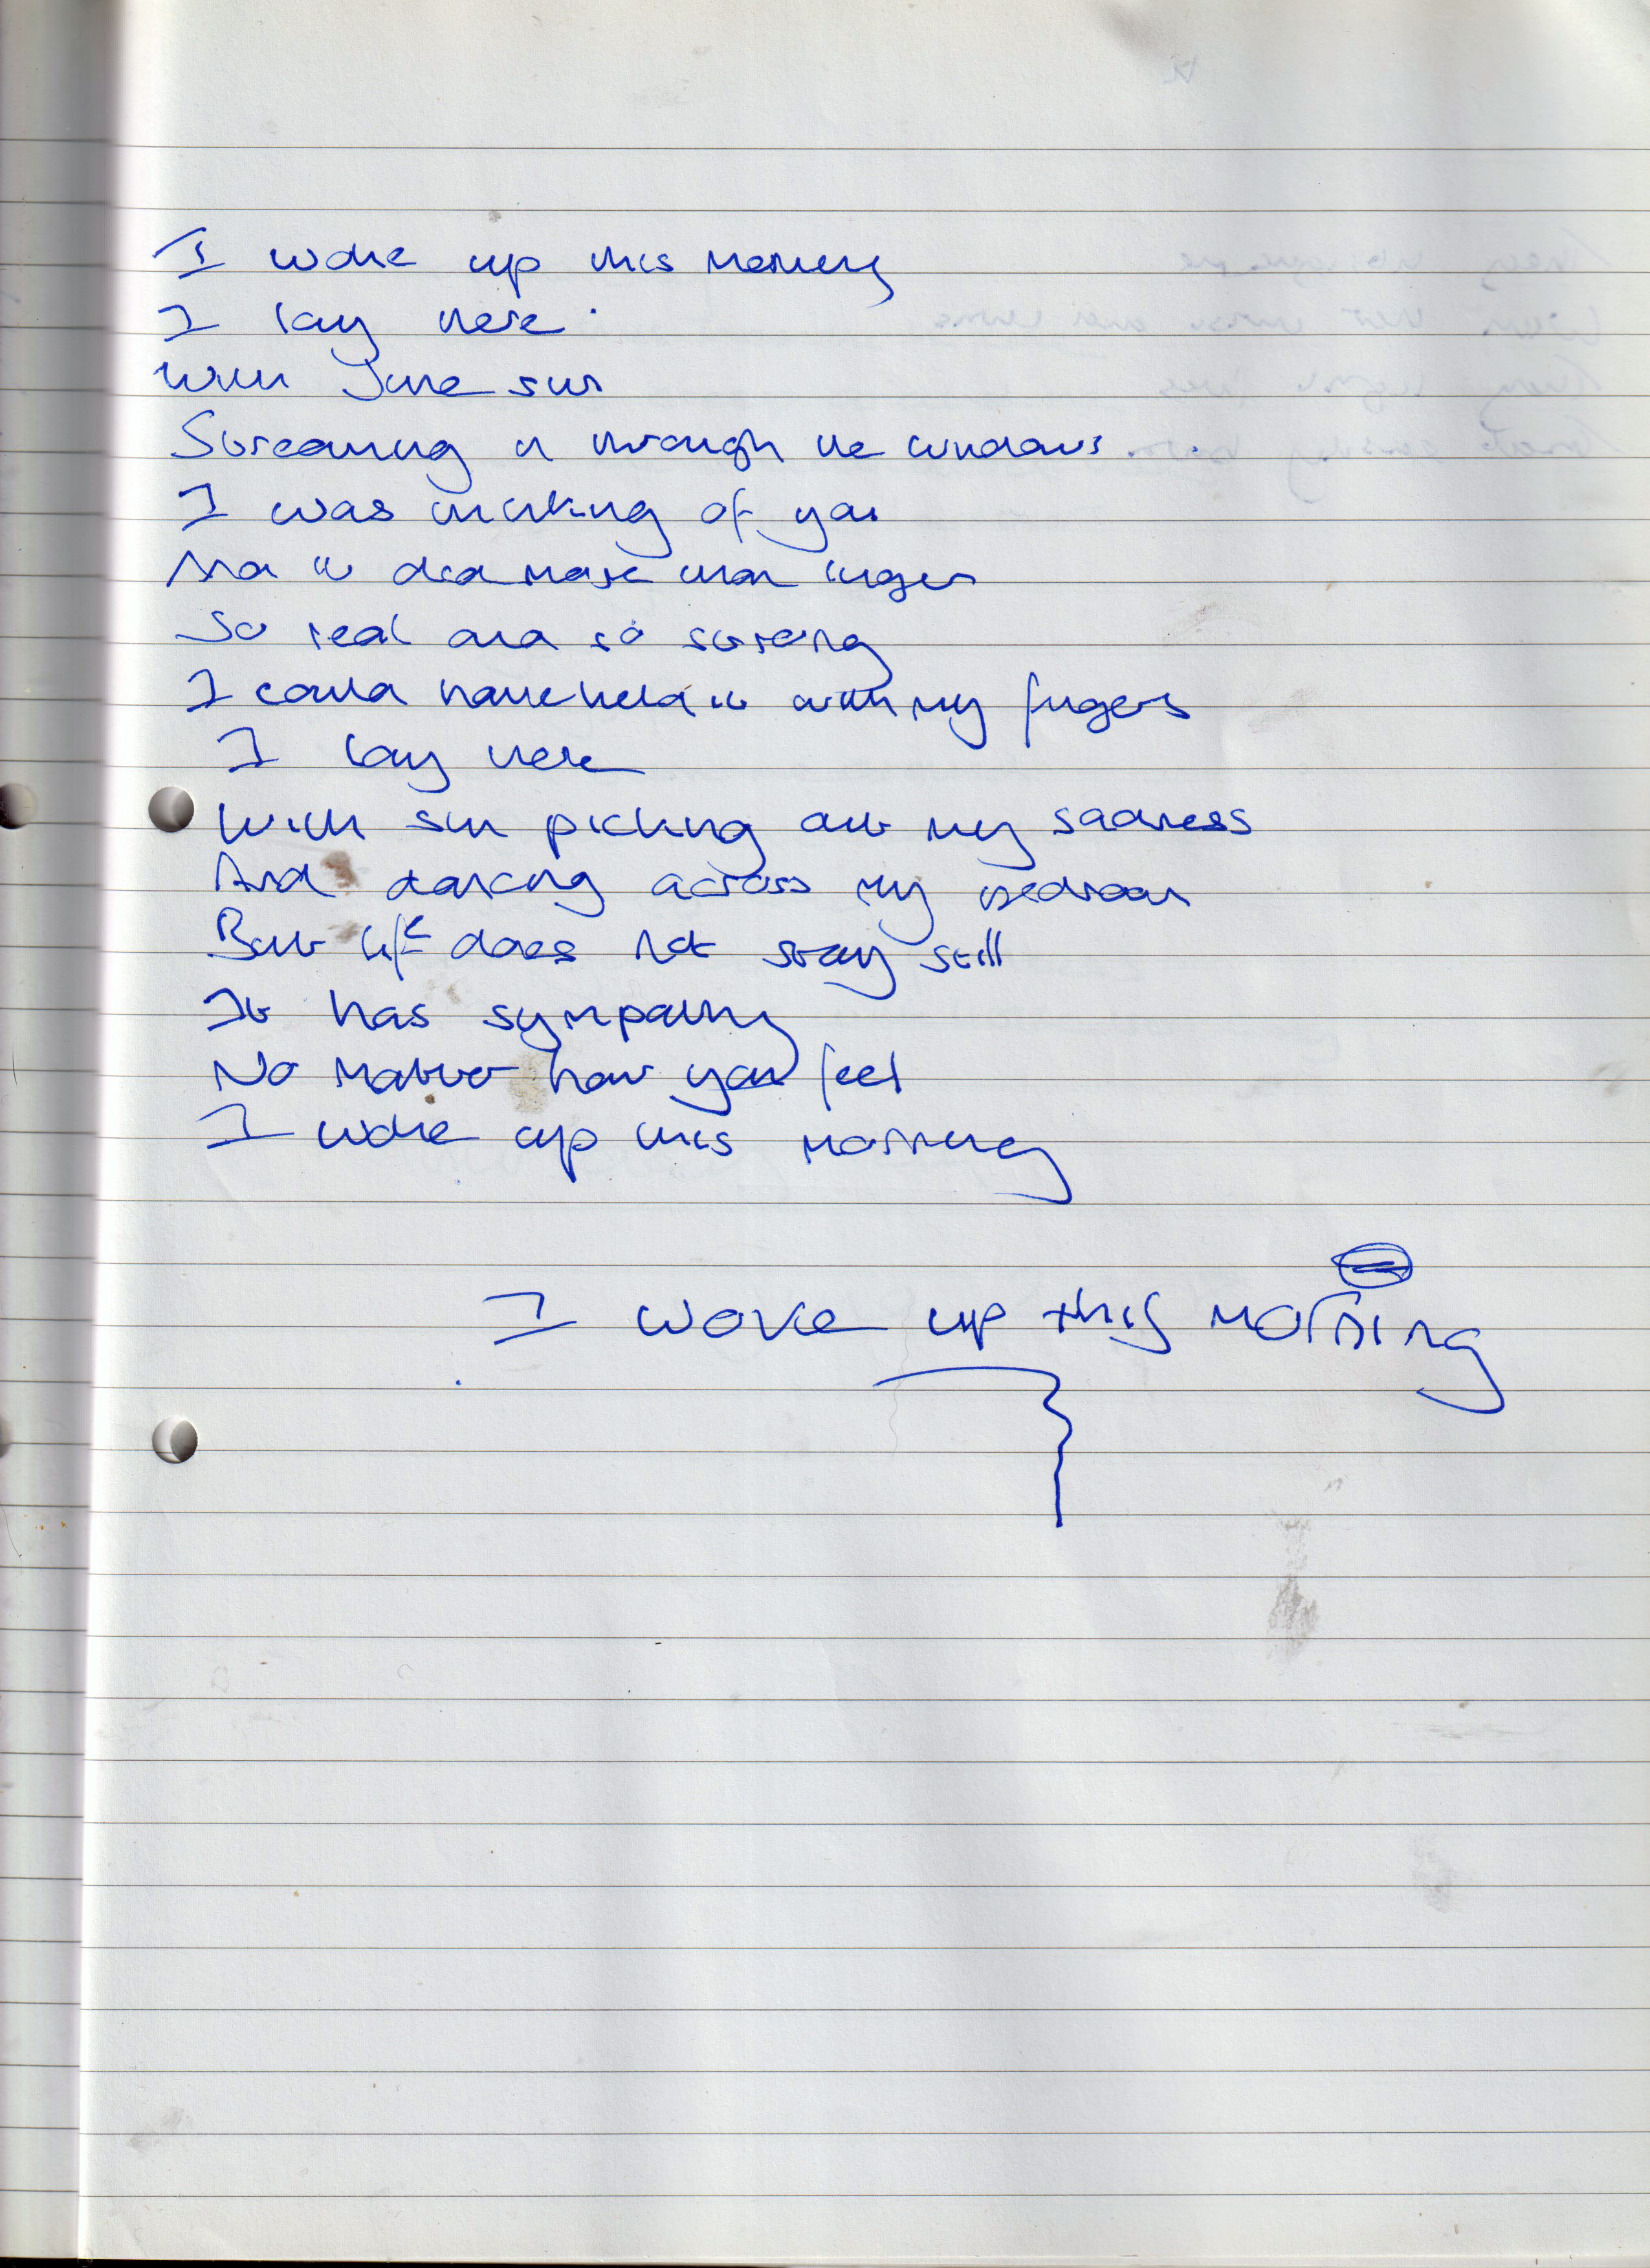 I woke up this morning
I lay here
With June sun
Streaming in through the windows
I was thinking of you
And it did more than linger
So real and so strong
I could have held it with my fingers
I lay here
With sun picking out my sadness
And dancing across my bedroom
But life does not stay still
It has sympathy
No matter how you feel
I woke up this morning
I woke up this morning